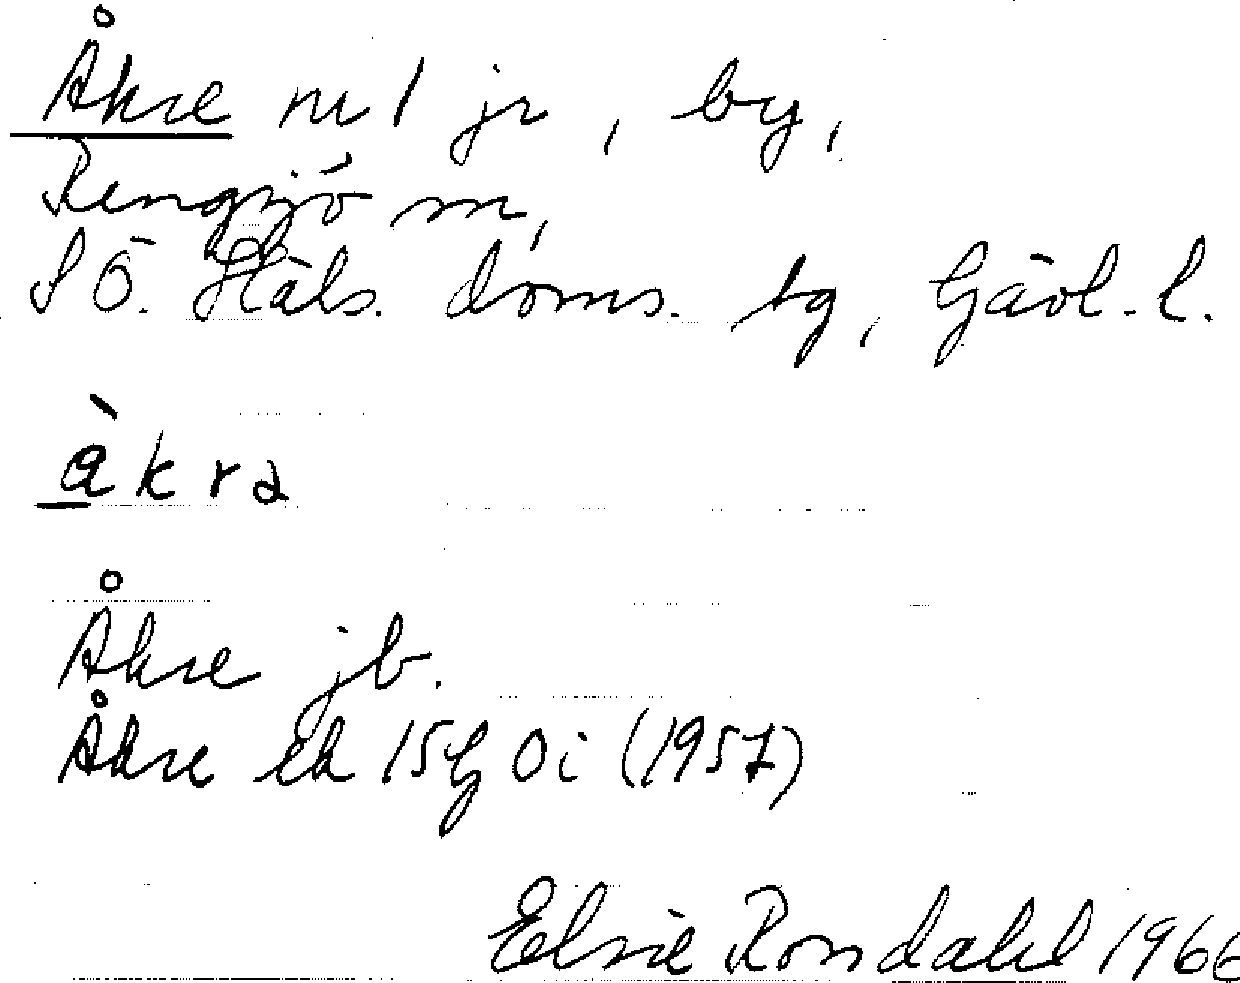 Åkre nr 1 jr, by,
Rengsjö sn,
SÖ. Häls. doms. tg, Gävl. l.
àkra
Åkre jb.
Åkre ek 15G 0i (1957)
Elsie Rondahl 1966